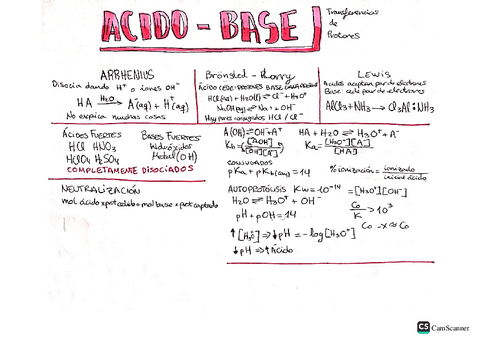 ACIDO - BASE
Transferencias
de
Protones
ARRHENIUS
Disocia dando H⁺ o iones OH⁻
HA →H₂O A⁻(aq) + H⁺(aq)
No explica muchas cosas
Brönsted - Lowry
ÁCIDO CEDE PROTONES BASE CAPTA PROTONES
HCl(aq) + H₂O(l) ⇌ Cl⁻ + H₃O⁺
NaOH(aq) ⇌ Na⁺ + OH⁻
Hay pares conjugados HCl / Cl⁻
LEWIS
Ácidos aceptan par de electrones
Base cede par de electrones
AlCl₃ + NH₃ → Cl₃Al:NH₃
ÁCIDOS FUERTES
HCl HNO₃
HClO₄ H₂SO₄
BASES FUERTES
Hidróxidos
Metal(OH)
COMPLETAMENTE DISOCIADOS
NEUTRALIZACIÓN
mol ácido x prot cedido = mol base x prot captado
A(OH) ⇌ OH⁻ + A⁺
Kb =
HA + H₂O ⇌ H₃O⁺ + A⁻
Ka = [H₃O⁺][A⁻] / [HA]
CONJUGADOS
pKa + pKb(conj) = 14
% ionización = ionizado / inicial ácido
AUTOPROTÓLISIS Kw = 10⁻¹⁴ = [H₃O⁺][OH⁻]
H₂O ⇌ H₃O⁺ + OH⁻
pH + pOH = 14
Co / K > 10³
Co - x ≈ Co
↑[H₃O⁺] ⇒ ↓pH = -log[H₃O⁺]
↓pH ⇒ ↑Ácido
CS CamScanner